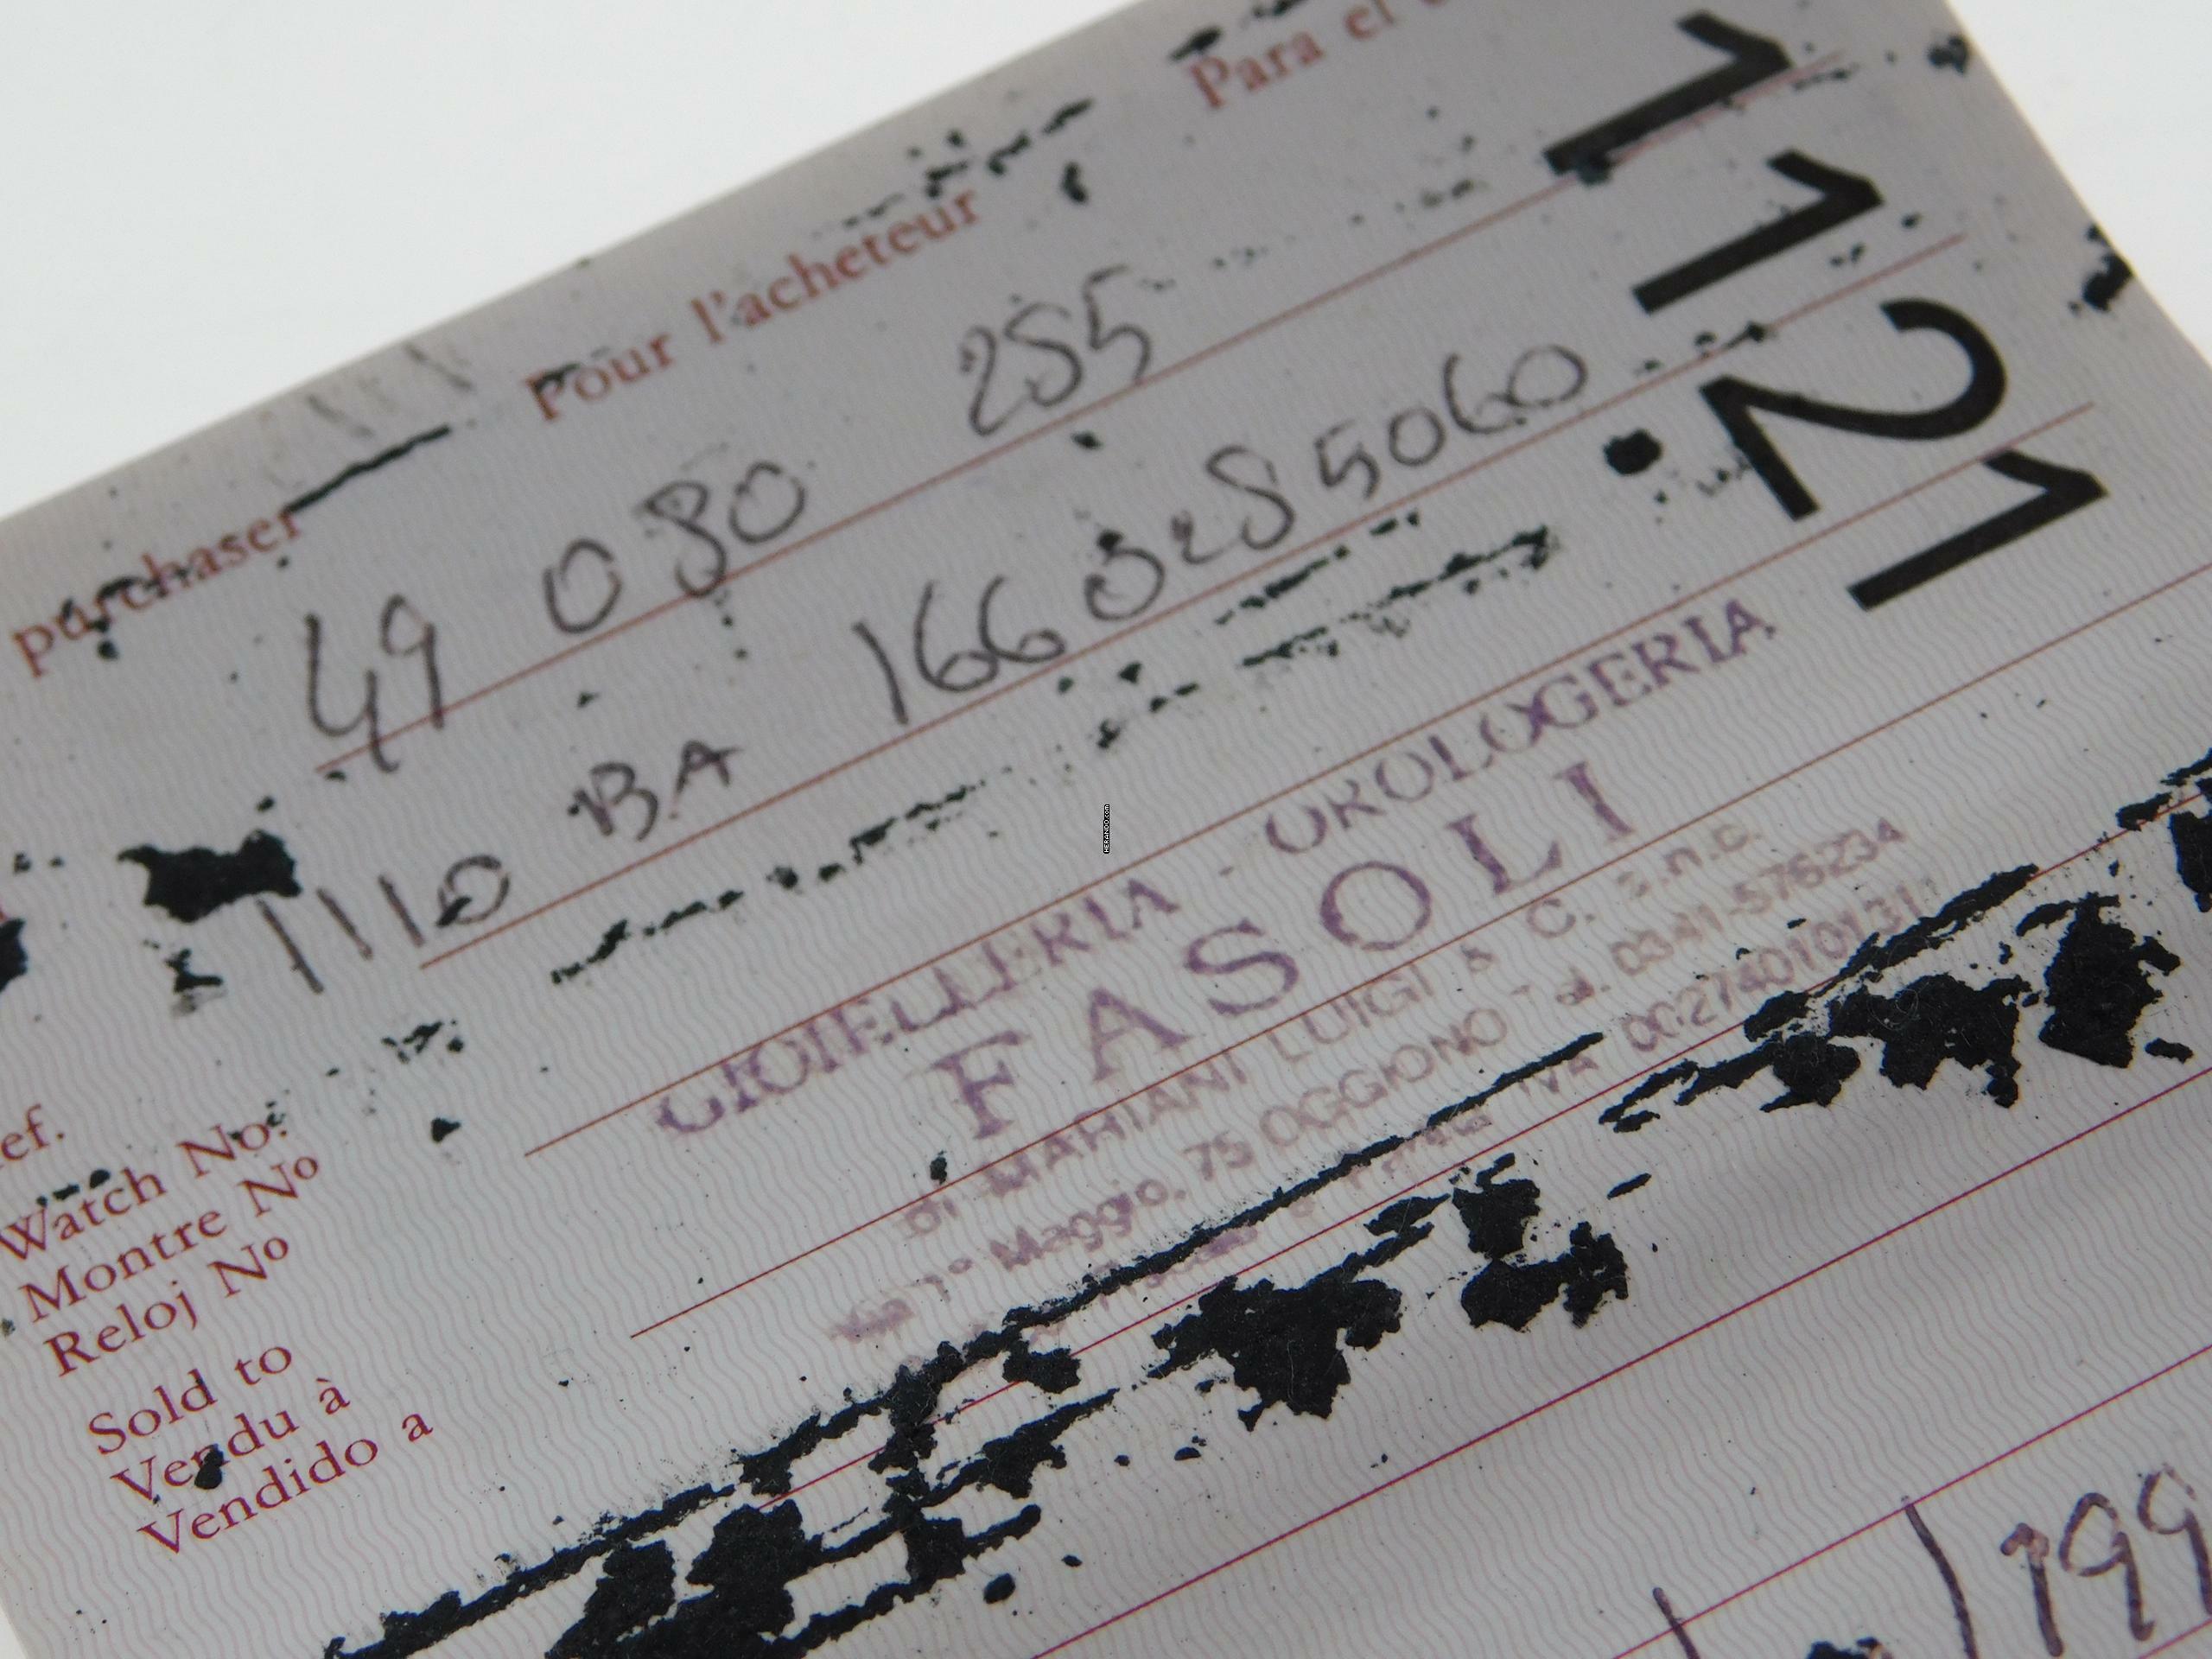 purchaser Pour l'acheteur Para el
49 080 285
1110 BA 1668285060
1121
ef.
Watch No.
Montre No
Reloj No
GIOIELLERIA - OROLOGERIA
FASOLI
DI MARIANI LUIGI & C. s.n.c.
Via 1° Maggio, 75 OGGIONO - Tel. 0341-576234
IVA 00274010131
Sold to
Vendu à
Vendido a
199
HERANDO.com